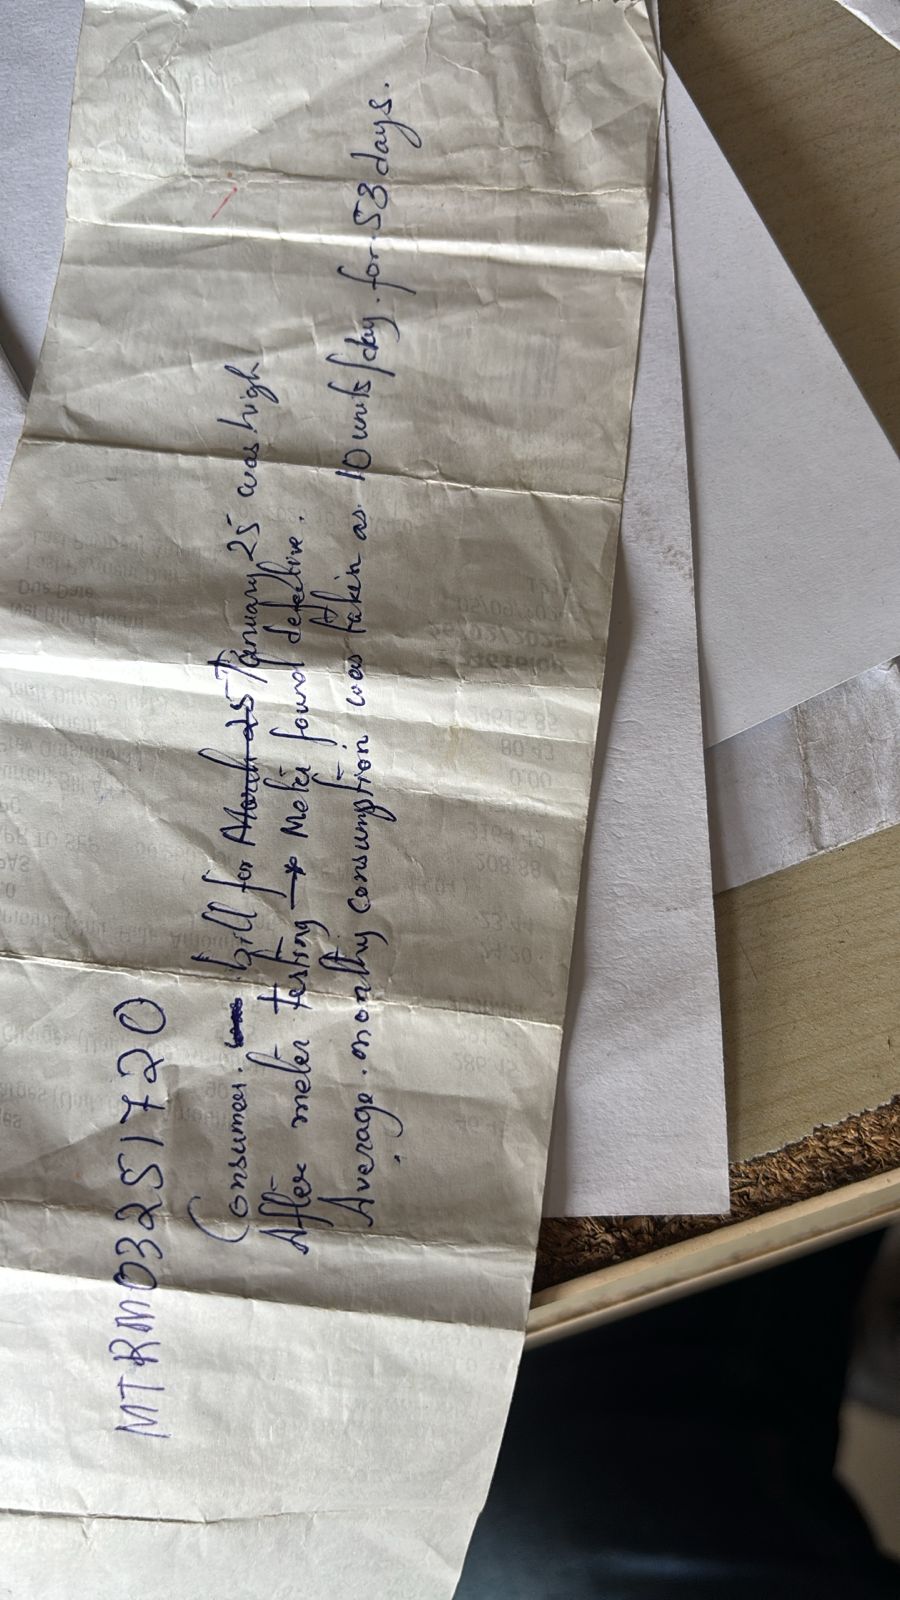 MTRM03251720
Consumer bill for January 25 was high
After meter testing → Meter found defective.
Average monthly consumption was taken as 10 units/day for 53 days.